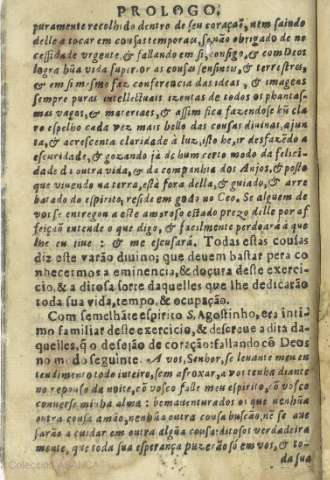 PROLOGO.
puramente recolhido dentro de seu coraçaõ, nem saindo
delle a tocar em cousas temporais, senão obrigado de ne
cessidade urgente & fallando em si, consigo, & com Deos
logra hũa vida superior as cousas sensiveis, & terrestres,
& em si mesmo faz conferencia das ideas, & imagens
sempre puras intellectuais izentas de todos os phantas-
mas vagos, & materiaes, & assim fica fazendose hũ cla
ro espelho cada vez mais bello das cousas divinas, ajun
ta, & acrescenta claridade à luz, isto he, ir desfazẽdo a
escuridade, & gozando já de hum certo modo da felici-
dade da outra vida, & da companhia dos Anjos, & posto
que vivendo na terra, està fora della, & guiado, & arre
batado do espirito, reside em todo no Ceo. Se alguem de
vos se entregou a este amoroso estado prezo delle por af
feiçaõ entende o que digo, & facilmente perdoarà o que
lhe eu tive: & me escusarà. Todas estas cousas
diz este varão divino; que devem bastar pera co
nhecermos a eminencia, & doçura deste exerci-
cio, & a ditosa sorte daquelles que lhe dedicarão
toda sua vida, tempo, & ocupação.
Com semelhãte espirito S. Agostinho, era inti
mo familiar deste exercicio, & descreve a dita da
quelles, q̃ o desejão de coração: fallando cõ Deos
no modo seguinte. A vos, Senhor, se levante meu en
tendimento todo inteiro, sem afroxar, a vos tenha diante
no repouso da noite, cõ vosco falle meu espirito, cõ vosco
converse minha alma: bemaventurados os que nenhũa
outra cousa amão, nenhũa outra cousa buscão, nẽ se ave
sarão a cuidar em outra algũa cousa: ditosos verdadeira
mente, que toda sua esperança puzerão só em vos, & to-
da sua